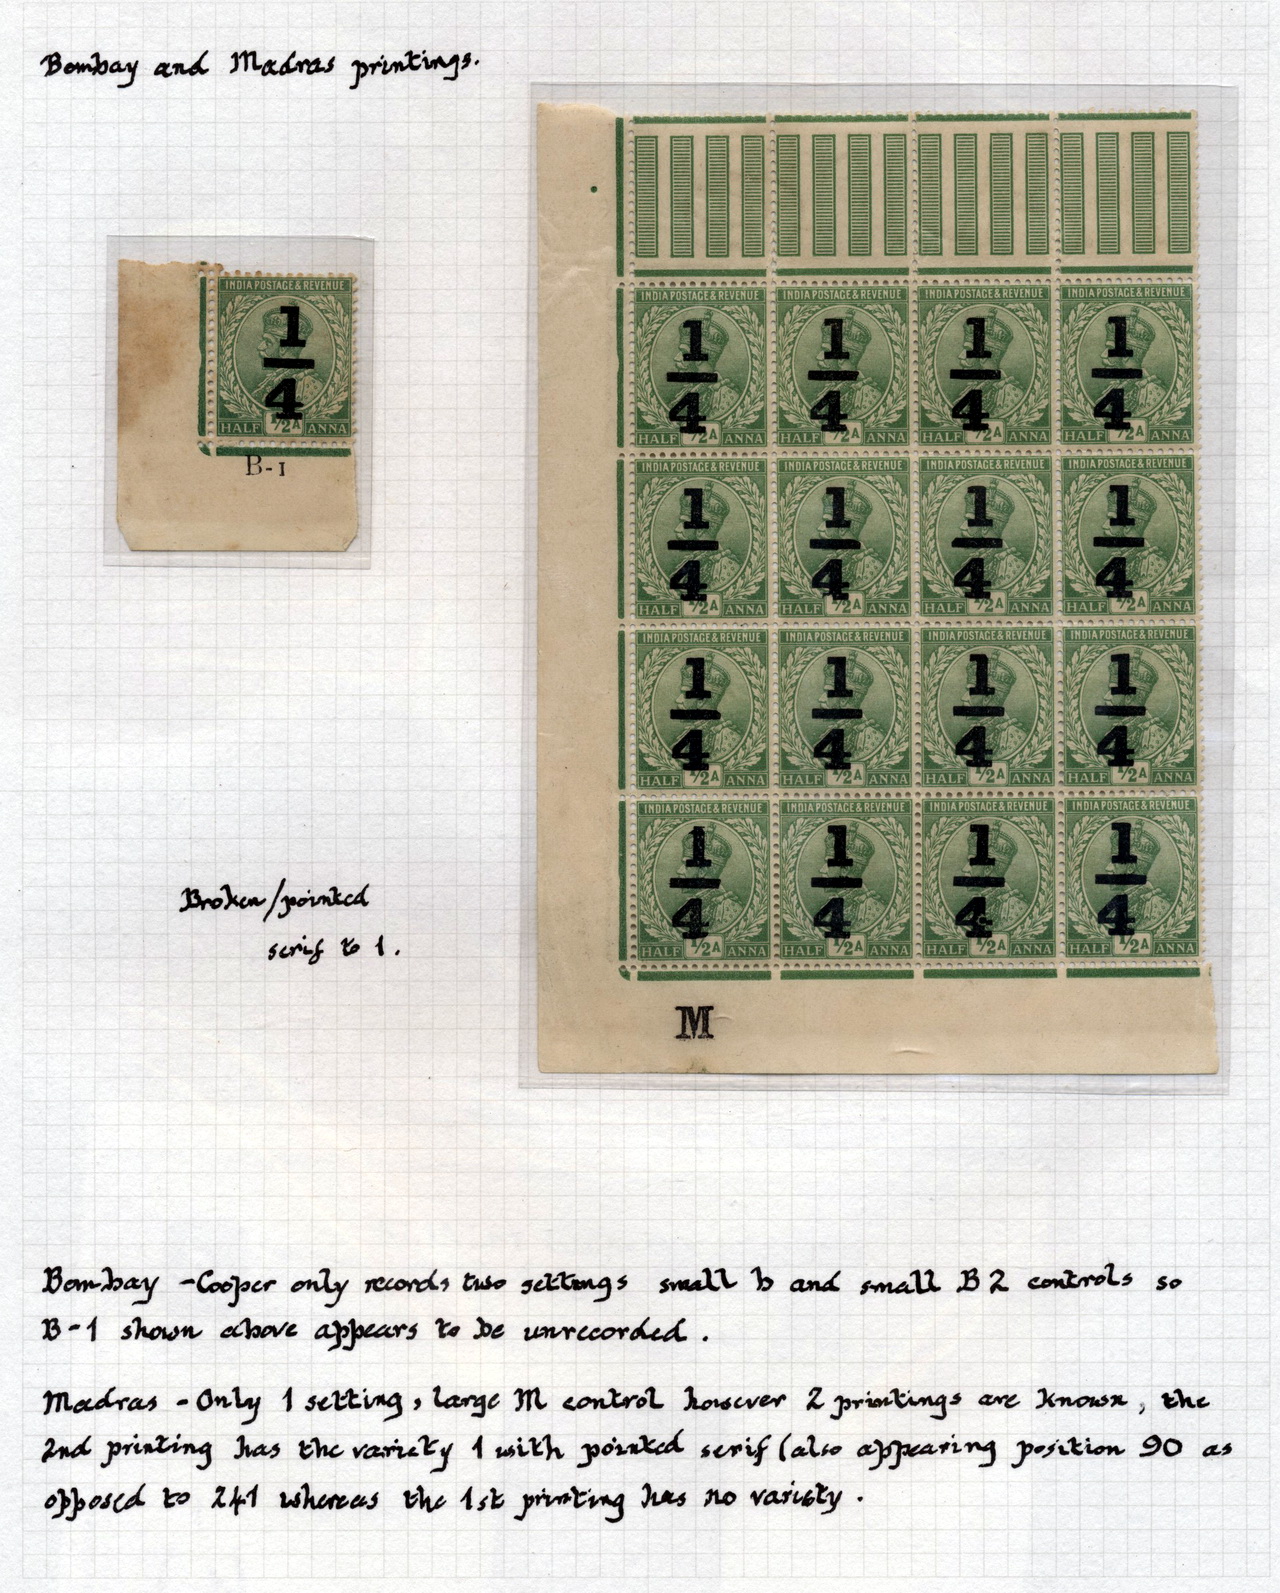 Bombay and Madras printings.
INDIA POSTAGE & REVENUE
1
4
HALF ½A ANNA
B-1
INDIA POSTAGE & REVENUE INDIA POSTAGE & REVENUE INDIA POSTAGE & REVENUE INDIA POSTAGE & REVENUE
1 1 1 1
4 4 4 4
HALF ½A ANNA HALF ½A ANNA HALF ½A ANNA HALF ½A ANNA
INDIA POSTAGE & REVENUE INDIA POSTAGE & REVENUE INDIA POSTAGE & REVENUE INDIA POSTAGE & REVENUE
1 1 1 1
4 4 4 4
HALF ½A ANNA HALF ½A ANNA HALF ½A ANNA HALF ½A ANNA
INDIA POSTAGE & REVENUE INDIA POSTAGE & REVENUE INDIA POSTAGE & REVENUE INDIA POSTAGE & REVENUE
1 1 1 1
4 4 4 4
HALF ½A ANNA HALF ½A ANNA HALF ½A ANNA HALF ½A ANNA
INDIA POSTAGE & REVENUE INDIA POSTAGE & REVENUE INDIA POSTAGE & REVENUE INDIA POSTAGE & REVENUE
1 1 1 1
4 4 4 4
HALF ½A ANNA HALF ½A ANNA HALF ½A ANNA HALF ½A ANNA
M
Broken/pointed
serif to 1.
Bombay - Cooper only records two settings small b and small B2 controls so
B-1 shown above appears to be unrecorded.
Madras - Only 1 setting, large M control however 2 printings are known, the
2nd printing has the variety 1 with pointed serif (also appearing position 90 as
opposed to 241 whereas the 1st printing has no variety.